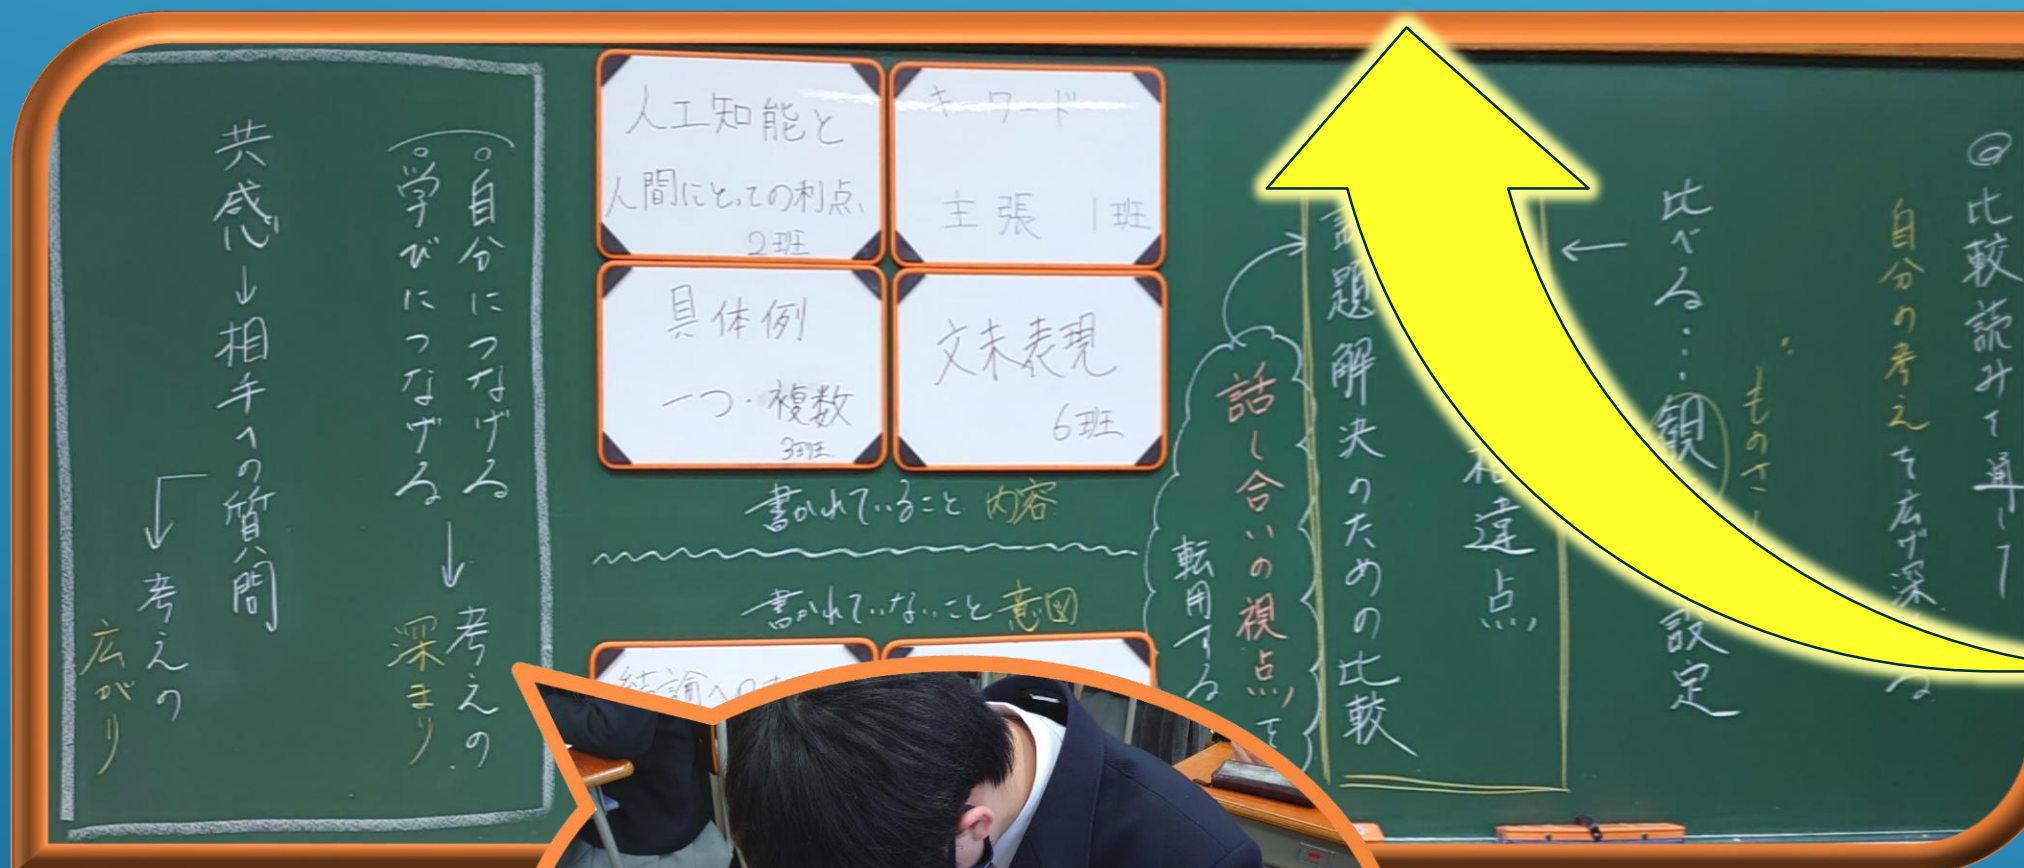 ◎比較読みを通して
自分の考えを広げ深める
ものさし
比べる…観
設定
相違点
課題解決のための比較
話し合いの視点を
転用する
キーワード
主張 1班
人工知能と
人間にとっての利点、
2班
文末表現
6班
具体例
一つ・複数
3班
書かれていること 内容
書かれていないこと 意図
結論への
。自分につなげる
。学びにつなげる
↓
考えの
深まり
共感→相手への質問
↓
考えの
広がり